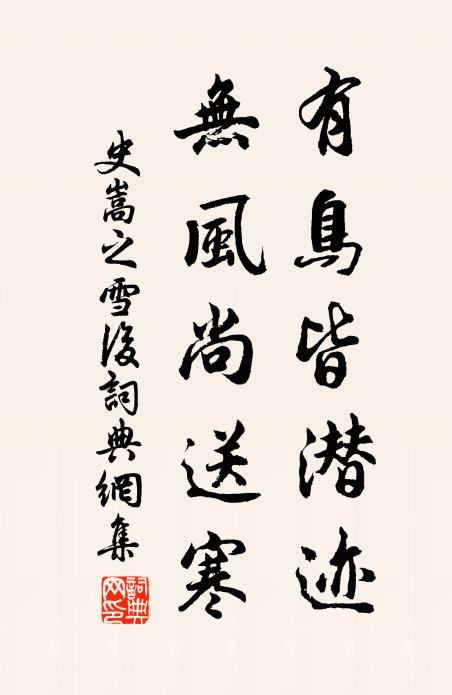 有鳥皆潜迹
無風尚送寒
史嵩之雪後詞典網集
詞典網印